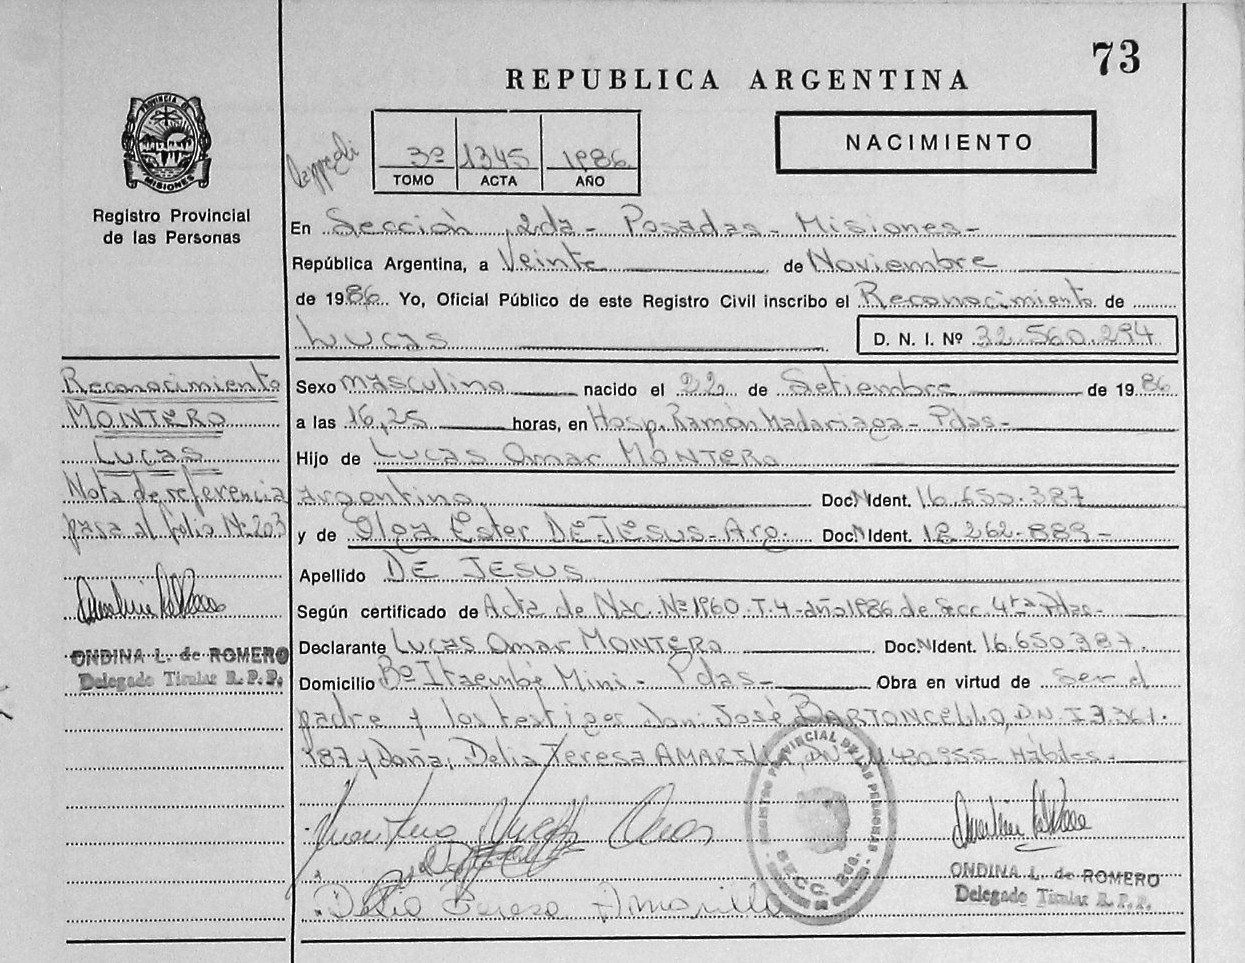 73
REPUBLICA ARGENTINA
NACIMIENTO
3º 1345 1986
TOMO ACTA AÑO
PROVINCIA DE
MISIONES
Registro Provincial
de las Personas
En Sección 2da - Posadas - Misiones -
República Argentina, a Veinte de Noviembre
de 1986 Yo, Oficial Público de este Registro Civil inscribo el Reconocimiento de
Lucas D. N. I. Nº 32.560.294
Reconocimiento
MONTERO
Lucas
Nota de referencia
pasa al folio Nº 203
ONDINA L. de ROMERO
Delegado Titular R. P. P.
Sexo masculino nacido el 22 de Setiembre de 1986
a las 16,25 horas, en Hosp. Ramón Madariaga - Pdas -
Hijo de Lucas Omar MONTERO
argentino Doc. Ident. 16.650.387
y de Olga Ester DE JESUS - Arg. Doc. Ident. 18.262.889 -
Apellido DE JESUS
Según certificado de Acta de Nac. Nº 1960 - T. 4 - año 1986 de Secc. 4ta Pdas -
Declarante Lucas Omar MONTERO Doc. Ident. 16.650.387.
Domicilio Bº Itaembé Mini - Pdas - Obra en virtud de ser el
padre y los testigos don: José BARTONCELLO, DN.I 7.361.
187 y doña, Delia Teresa AMARILLA, DN 480.955 Hábiles -
REGISTRO PROVINCIAL DE LAS PERSONAS
SECC. 2da.
Delia Teresa Amarilla
ONDINA L. de ROMERO
Delegado Titular R. P. P.